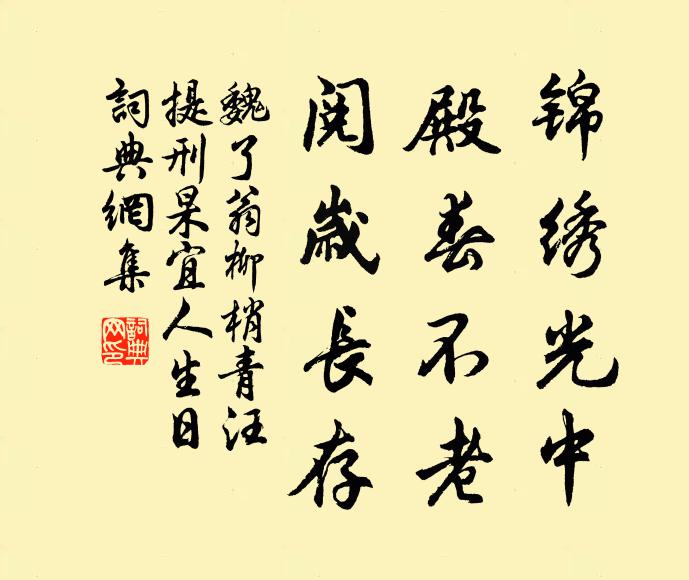 锦绣光中
殿春不老
阅歳長存
魏了翁柳梢青汪
提刑杲宜人生日
詞典網集
詞典網印